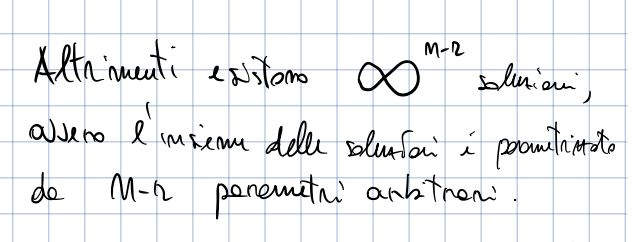 Altrimenti esistono ∞^{n-r} soluzioni,
ovvero l'insieme delle soluzioni è parametrizzato
da n-r parametri arbitrari.